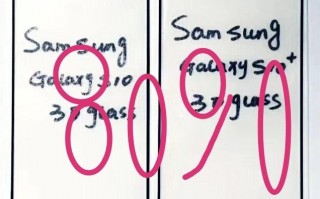 Samsung
Galaxy S10
3D glass
Samsung
Galaxy S10+
3D glass
80 90